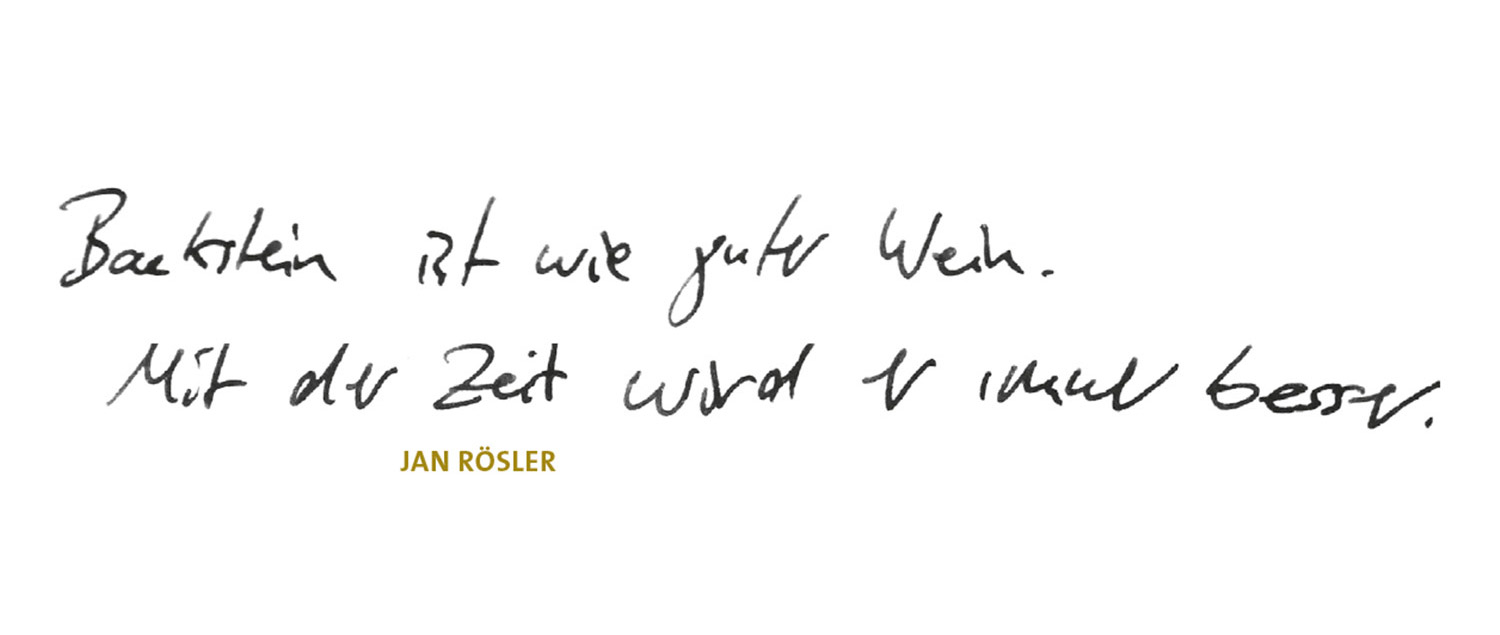 Backstein ist wie guter Wein.
Mit der Zeit wird er immer besser.
JAN RÖSLER